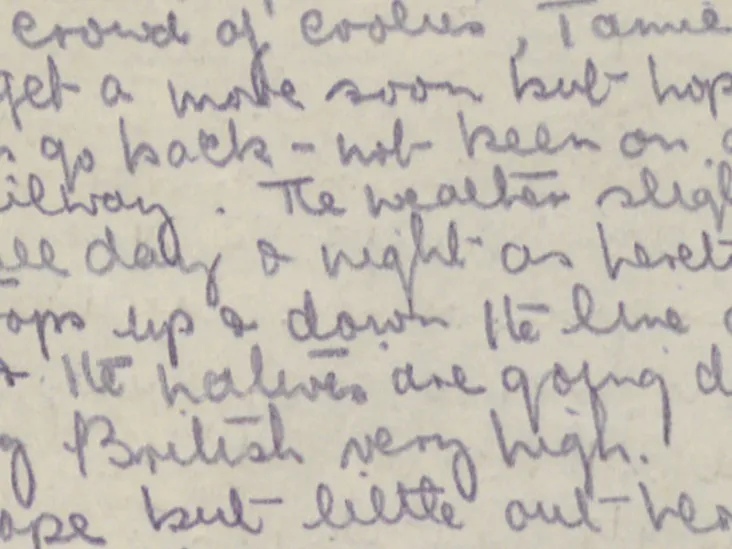 crowd of coolies, Tamil
get a move soon but hop
go back - not been on
ilway. The weather slig
all day & night as heret
ops up & down the line
& the natives are going d
g British very high.
ope but little out her